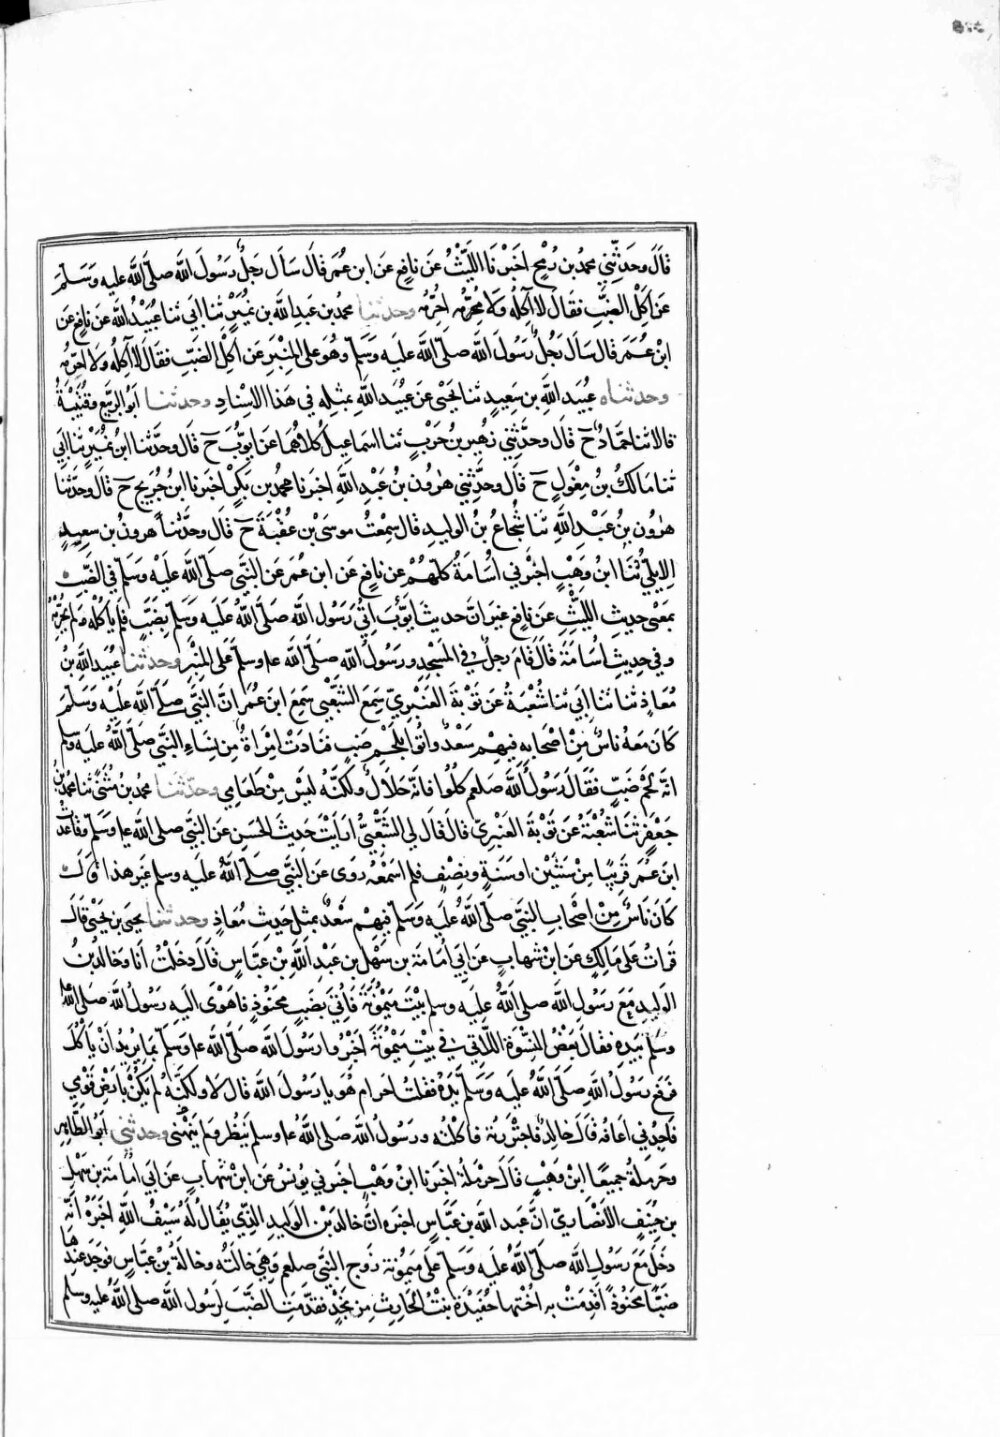 قَالَ وحَدَّثَنِي محمد بن رُمْحٍ اخْبَرَنَا اللَّيْثُ عَن نَافِعٍ عَنِ ابن عُمَرَ قَالَ سَأَلَ رَجُلٌ رَسُولَ الله صَلَّى الله عليه وَسَلَّمَ
عَنْ اَكْلِ الضَّبِّ فَقَالَ لا آكُلُهُ وَلَا مُحَرِّمُهُ اُحَرِّمُهُ وحدثنا محمد بن عَبدِ الله بن نُمَيْرٍ ثنا ابَي ثنا عُبَيْدُ الله عَن نافِعٍ عَنِ
ابْنِ عُمَرَ قال سَأَلَ رَجُلٌ رَسُولَ الله صَلَّى الله عليه وَسَلَّمَ وهُوَ على المِنْبَرِ عَن اَكْلِ الضَّبِّ فقَالَ لا آكُلُهُ ولا اُحَرِّمُهُ
وحدثناه عُبَيد الله بن سَعِيدٍ ثنا يَحْيَى عَن عُبَيدِ الله بمثلِهِ في هَذَا الاِسْنادِ وحدثنا ابُو الرَّبِيعِ وقُتَيْبَةُ
قالا ثنا حَمَّادٌ ح قَالَ وحَدَّثَنِي زُهَير بن حَرْبٍ ثنا اسمَاعيل كِلَاهُمَا عَن ايوّبَ ح قَالَ وحَدَّثنا ابنُ نُمَيْرٍ ثنا ابَي
ثنا مَالكُ بن مِغْوَلٍ ح قَالَ وحَدّثني هٰرُون بن عَبْدِ الله اخبرنا محمد بن بَكرٍ اخبَرنا ابنُ جُرَيجٍ ح قَالَ وحَدّثنا
هٰرُون بنُ عَبْدِ اللهِ ثنا شُجَاعُ بنُ الوليدِ قال سمِعْتُ موسَىٰ بن عُقْبَةَ ح قَالَ وحَدّثنا هرونُ بن سعِيدٍ
الاِيليُّ ثنَا ابنُ وَهْبٍ اخبَرني اُسَامَةُ كلّهُمْ عَن نافِعٍ عَن ابن عُمرَ عَنِ النَّبي صَلَّى اللهُ عَلَيْهِ وَسَلَّمَ في الضَّبِّ
بمَعْنَى حدِيثِ اللَّيْثِ عَن نافِعٍ غيرَ انَّ حديثَ ايُّوبَ اُتِيَ رَسُولُ اللهِ صَلَّى اللهُ عَلَيه وَسَلَّمَ بِضَبٍّ فلَم يَاكُلْهُ ولم يُحَرِّمْهُ
وفي حدِيثِ اُسَامَةَ قَالَ قَامَ رجلٌ في المَسْجِدِ ورَسُولُ اللهِ صلَّى الله ع‍ وسلم عَلَى المِنْبَرِ وحدثنا عُبَيد الله بنُ
مُعَاذٍ ثنا ثنا ابَي ثنا شُعْبَةُ عَن تَوْبَةَ العَنبَرِيّ سَمِعَ الشَّعْبيَّ سَمِعَ ابنَ عُمَرَ انَّ النَّبيَّ صَلَّى اللهُ عَلَيْهِ وَسَلَّمَ
كَانَ مَعَهُ ناسٌ مِنْ اصْحَابِهِ فِيهِمْ سَعْدٌ واُتُوا بِلَحْمِ ضَبٍ فنَادَتْ امْرَاةٌ مِن نِسَاءِ النَّبي صَلَّى اللهُ عليه وَسَلَّمَ
انّهُ لَحْمُ ضَبٍّ فقَالَ رَسُولُ الله صلعم كُلُوا فانّهُ حَلالٌ ولكنّهُ ليسَ مِنْ طَعَامِي وحَدَّثَنا محمد بن مُثَنّىٰ ثنا محمد بنُ
جَعْفَرٍ ثنا شُعْبَةُ عَنْ تَوْبَةَ العَنبرِيّ قال قَال لي الشَّعْبِيُّ ارَاَيْتَ حَدِيثَ الحَسَنِ عَن النَّبي صلَّى الله ع‍ وَسَلَّمَ وقاعَدْتُ
ابن عُمَرَ قَرِيبًا مِنْ سَنَتَيْنِ اوْ سَنَةٍ ونِصْفٍ فلم اسْمَعْهُ رَوى عَن النَّبيّ صَلَّى اللهُ عليه وسلم غَيرَ هذا قَالَ
كانَ نَاسٌ مِنْ اَصْحَابِ النَّبيّ صَلَّى اللهُ عليه وَسَلَّمَ فِيهِمْ سَعْدٌ بمثلِ حَدِيثِ مُعَاذٍ وحدثنا يحيَى بن يَحْيىٰ قَالَ
قَراتُ على مَالِكٍ عَنِ ابن شهابٍ عَن ابَي اُمَامَةَ بن سَهْل بن عَبدِ الله بن عَبَّاسٍ قَالَ دَخَلْتُ انَا وخَالِدُ بنُ
الوَلِيدِ مَعَ رَسُولِ الله صلى اللهُ عليه وسلم بَيْتَ مَيمُونَةَ فاُتِيَ بِضَبٍ مَحْنُوذٍ فاَهْوَى اليَهِ رَسُولُ الله صلى الله عليه
وسلم بِيَدِهِ فقال بَعْضُ النِسْوَةِ اللَّاتي في بَيْتِ مَيمُونَةَ اَخْبِرُوا رَسُولَ الله صَلّى الله ع‍ وَسَلَّمَ بِمَا يُرِيدُ اَنْ يَاكُلَ
فَرَفَعَ رَسُولُ اللهِ صَلَّى اللهُ عليه وَسَلَّمَ يَدَهُ فقلتُ احَرام هُوَ يا رَسُولَ الله قَال لا ولكِنَّهُ لم يَكُنْ بِاَرْضِ قَوْمِي
فَاَجِدُني اَعَافُهُ قَالَ خالدٌ فاجْتَرَرْتُهُ فاكلْتُه ورَسُولُ الله صلى الله ع‍ وسلم يَنظُر ولم يَنْهَنِي وحدثني ابُو الطَّاهِرِ
وحَرمَلةُ جَمِيعًا ابن وَهْبٍ قَالَ حَرْمَلةُ اخبَرنا ابنُ وَهْبٍ اخبَرني يُونسُ عَنِ ابن شهابٍ عَن ابَي امَامَةَ بن سَهْلِ
بن حُنَيفٍ الاَنْصَاريّ انَّ عَبد الله بن عبَّاسٍ اخبَره انَّ خالد بن الوَليدِ الذي يُقَالُ لَهُ سَيْفُ اللهِ اخبَرَهُ انَّهُ
دَخَلَ مَعَ رَسُولِ الله صَلَّى اللهُ عَلَيه وَسَلَّمَ عَلَى مَيمُونةَ زَوجِ النَّبي صلعم وَهِيَ خالَتُهُ وخالَةُ ابن عبَّاسٍ فوَجَدَ عِندَهَا
ضَبًّا محنُوذًا قَدِمَتْ به اُخْتُها حُفَيْدَة بِنْتُ الحَارِثِ مِن نجْدٍ فقدّمَتِ الضَّبَّ لِرَسُولِ الله صلى اللهُ عليه وسلم